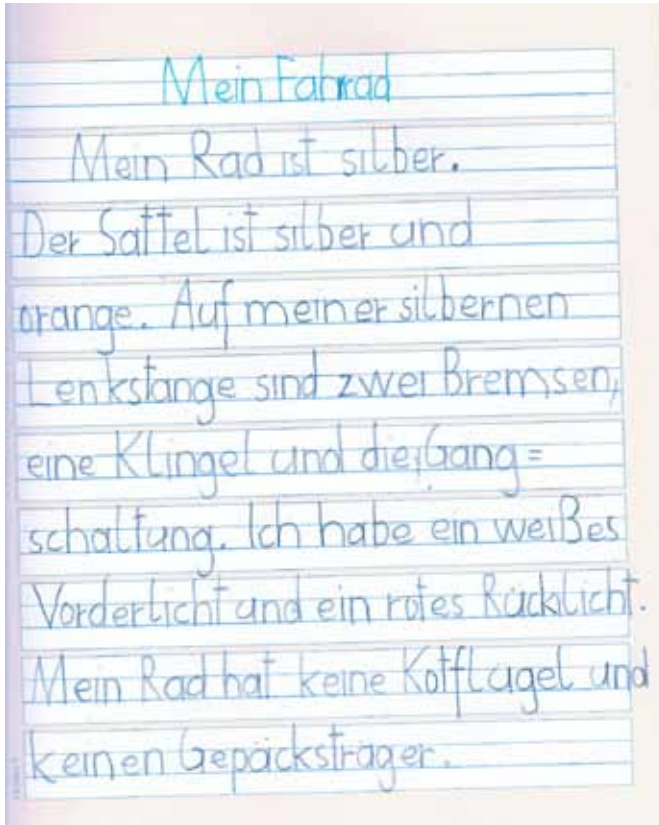 Mein Fahrrad
Mein Rad ist silber.
Der Sattel ist silber und
orange. Auf meiner silbernen
Lenkstange sind zwei Bremsen,
eine Klingel und die Gang=
schaltung. Ich habe ein weißes
Vorderlicht und ein rotes Rücklicht.
Mein Rad hat keine Kotflügel und
keinen Gepäcksträger.